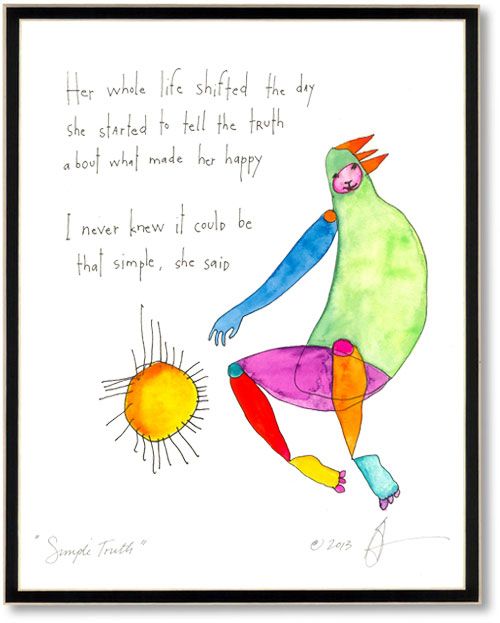 Her whole life shifted the day
she started to tell the truth
about what made her happy
I never knew it could be
that simple, she said
"Simple Truth"
© 2013